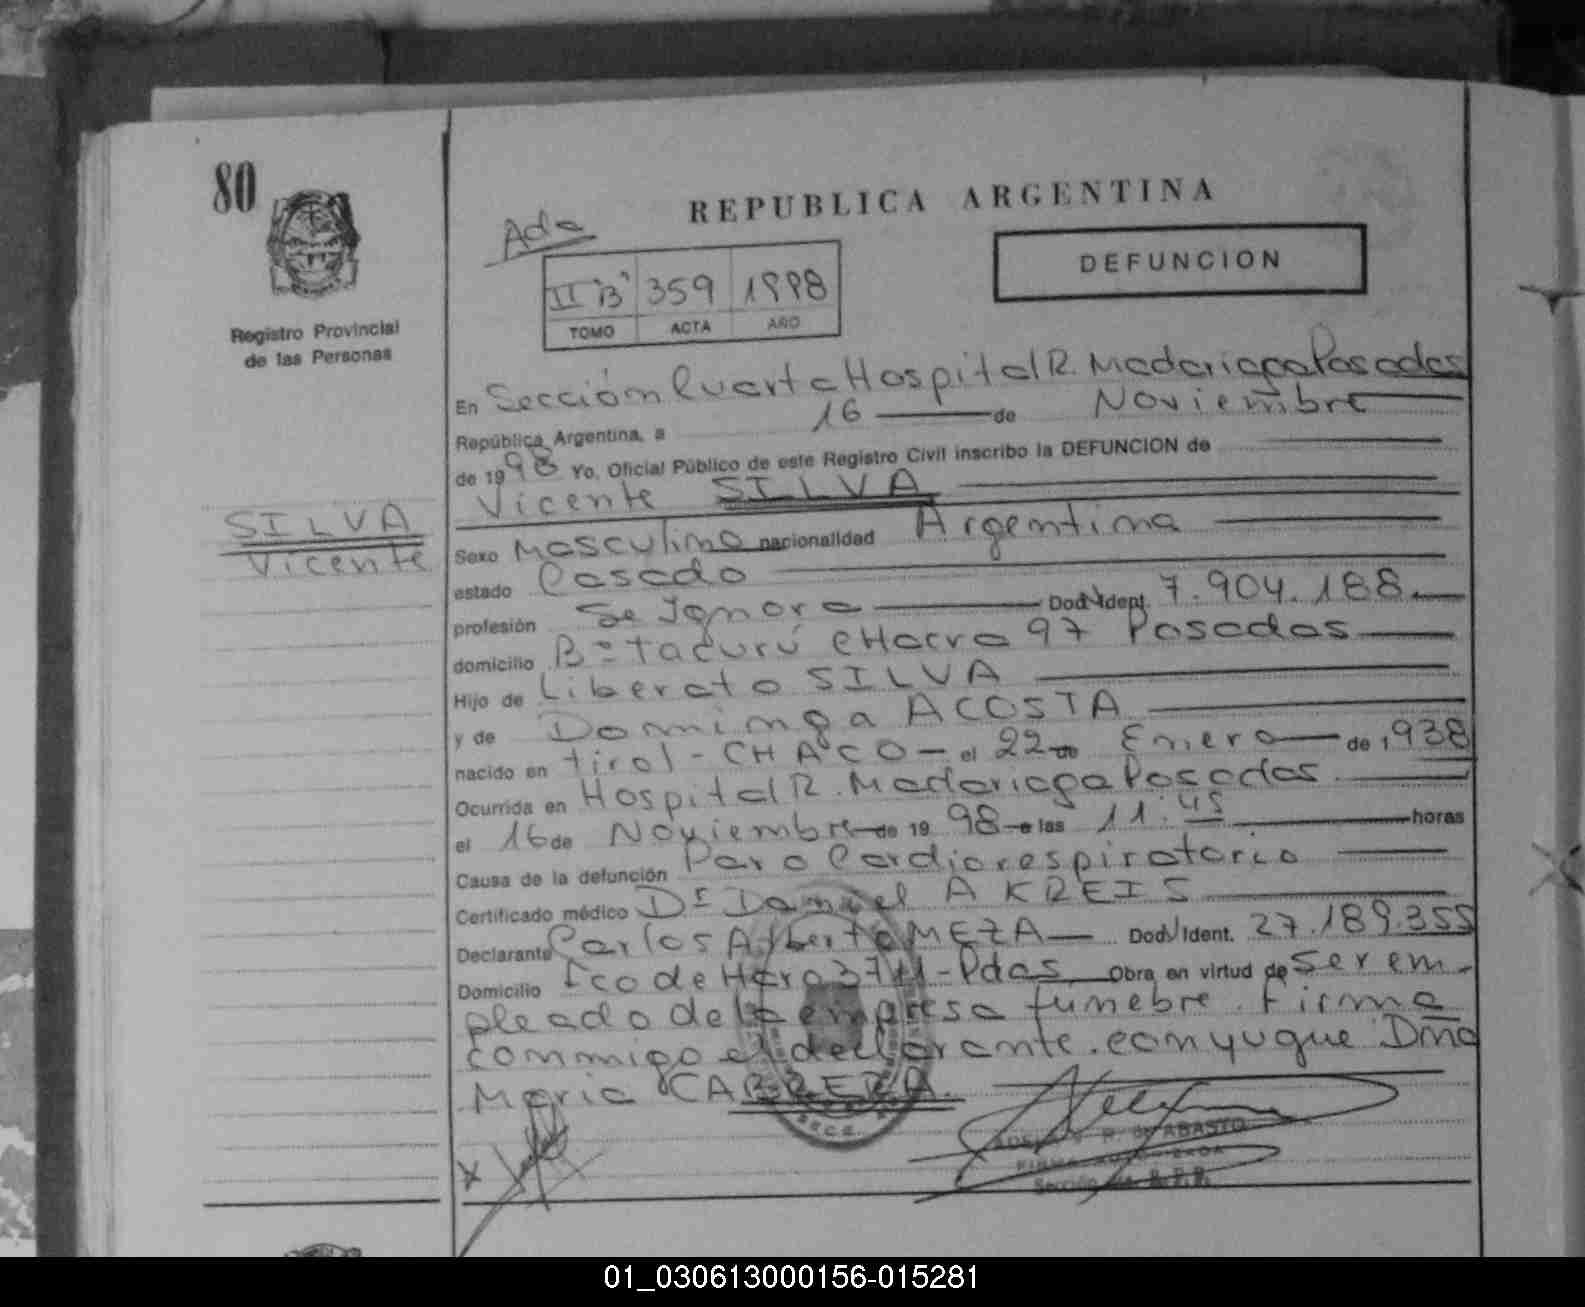 80
Registro Provincial
de las Personas
SILVA
Vicente
REPUBLICA ARGENTINA
DEFUNCION
II "B" 359 1998
TOMO ACTA AÑO
En Sección Cuarta Hospital R. Madariaga Posadas
República Argentina, a 16 de Noviembre
de 1998 Yo, Oficial Público de este Registro Civil inscribo la DEFUNCION de
Vicente SILVA
Sexo Masculino nacionalidad Argentina
estado Casado
profesión Se Ignora Doc. Ident. 7.904.188
domicilio Bº Tacurú cHacra 97 Posadas
Hijo de Liberato SILVA
y de Dominga ACOSTA
nacido en tirol - CHACO - el 22 de Enero de 1938
Ocurrida en Hospital R. Madariaga Posadas
el 16 de Noviembre de 1998 a las 11:45 horas
Causa de la defunción Paro Cardiorespiratorio
Certificado médico Dr Daniel A KREIS
Declarante Carlos Alberto MEZA Doc. Ident. 27.189.355
Domicilio Fco de Haro - Pdas Obra en virtud de Ser em-
pleado de la empresa funebre. Firma
conmigo el declarante. conyugue Dña
Maria CABRERA.
X
01_030613000156-015281